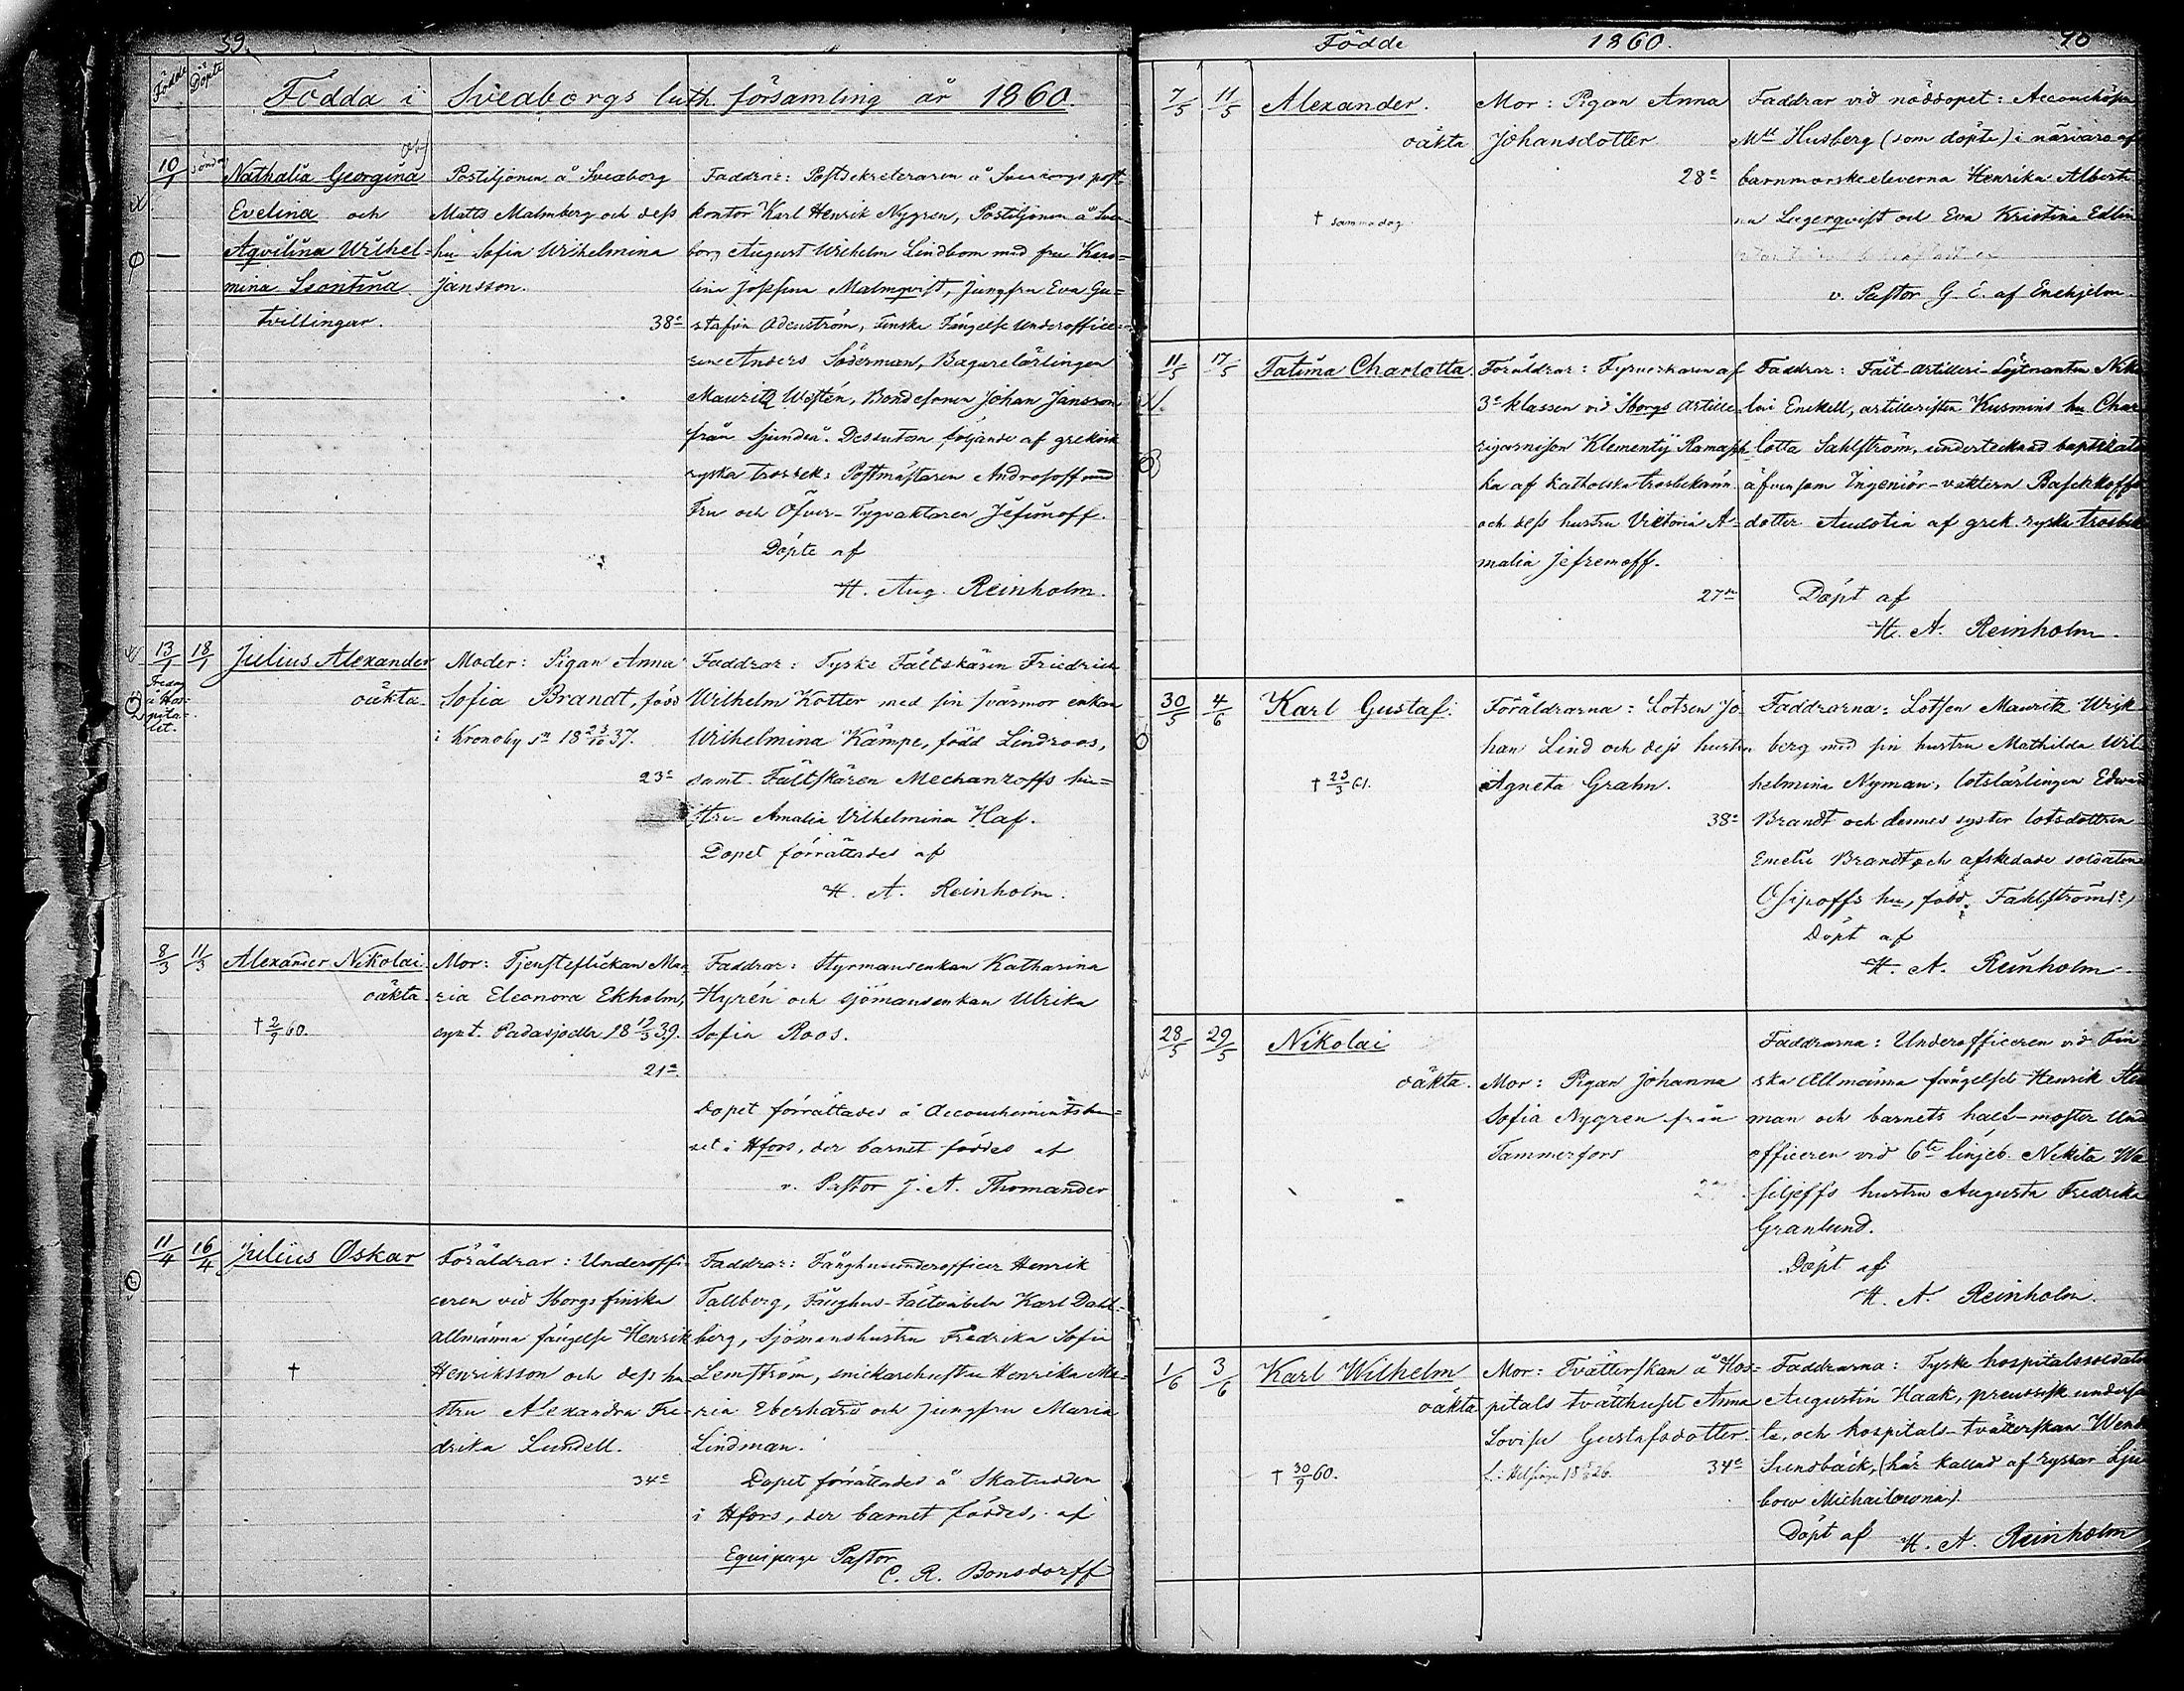 39.
Födde
Döpte
Födda i Sveaborgs luth. församling år 1860.
10/1
Nathalia Georgina
Evelina och
Aqvilina Wilhel=
mina Leontina
tvillingar.
Postiljonen å Sveaborg
Matts Malmberg och dess
hu Sofia Wilhelmina
Jansson.
38e
Faddrar: Postsekreteraren å Sveaborgs post-
kontor Karl Henrik Nygren, Postiljonen å Svea-
borg August Wilhelm Lindbom med fru Karo=
lina Josefina Malmqvist, Jungfru Eva Gu=
stafva Adenström, Finska Fängelse Underoffice-
rene Anders Söderman, Bagarelärlingen
Mauritz Westén, Bondesonen Johan Jansson
från Sjundeå. Dessutom följande af grekisk
ryska trosbek: Postmästaren Androsoff med
Fru och Öfver-Tygvaktaren Jefimoff.
Döpte af
H. Aug. Reinholm.
13/1
18/1
Fredag
å Hos-
pita-
let.
Julius Alexander
oäkta.
Moder: Pigan Anna
Sofia Brandt, född
i Kronoby sn 18 23/10 37.
23e
Faddrar: Tyske Fältskären Friedrich
Wilhelm Kotter med sin svärmor enkan
Wilhelmina Kämpe, född Lindroos,
samt Fältskären Mechanzoffs hu=
stru Amalia Vilhelmina Haf.
Dopet förrättades af
H. A. Reinholm.
8/3
11/3
Alexander Nikolai
oäkta.
† 2/9 60.
Mor: Tjensteflickan Ma-
ria Eleonora Ekholm,
Padasjoella 18 17/3 39.
21e.
Faddrar: Styrmansenkan Katharina
Hyrén och sjömansenkan Ulrika
Sofia Roos.
Dopet förrättades å Accouchementshu=
set i Hfors, der barnet föddes af
v. Pastor J. A. Thomander
11/4
16/4
Julius Oskar
†
Föräldrar: Underoffi-
ceren vid Sborgs finska
allmänna fängelse Henrik
Henriksson och dess hu
stru Alexandra Fre-
drika Lundell.
34e
Faddrar: Fånghusunderofficer Henrik
Tallberg, Fånghus-Fältväbeln Karl Dahl-
berg, Sjömanshustru Fredrika Sofia
Lemström, snickarehustru Henrika Ma-
ria Eberhard och jungfru Maria
Lindman.
Dopet förrättades å Skatudden
i Hfors, der barnet föddes, af
Equipage Pastor
C. R. Bonsdorff
Födde 1860. 40
7/5
11/5
Alexander.
oäkta
† samma dag
Mor: Pigan Anna
Johansdotter
28e
Faddrar vid nöddopet: Accouchösen
Mll Husberg (som döpte) i närvaro af
barnmorskeeleverna Henrika Alberti-
na Lagerqvist och Eva Kristina Edlin
v. Pastor G. E. af Enehjelm.
11/5
17/5
Fatima Charlotta.
Föräldrar: Fyrverkaren af
3e klassen vid Sborgs Artille-
rigarnison Klementij Ramasch
ka af katholska trosbekänn.
och dess hustru Viktoria A-
malia Jefremoff.
27e
Faddrar: Fält-Artilleri-Löjtnanten Niko
lai Enckell, artilleristen Kusmins hu Char
lotta Sahlström, undertecknad
äfvensom Ingeniör-vaktern Baschkoffs
dotter Audotia af grek. ryska trosbek
Döpt af
H. A. Reinholm.
30/5
4/6
Karl Gustaf.
† 23/3 61.
Föräldrarna: Lotsen Jo-
han Lind och dess hustru
Agneta Grahn.
38e
Faddrarna: Lotsen Mauritz Wijk
berg med sin hustru Mathilda Wil
helmina Nyman, lotslärlingen Edvard
Brandt och dennes syster lotsdottren
Emelie Brandt, och afskedade soldaten
Osipoffs hu, född Fahlström(?)
Döpt af
H. A. Reinholm
28/5
29/5
Nikolai
oäkta.
Mor: Pigan Johanna
Sofia Nygren från
Tammerfors
Faddrarna: Underofficeren vid Fin
ska Allmänna fängelset Henrik
man och barnets half-moster Und
officeren vid 6te linjeb. Nikita Wa
siljeff's hustru Augusta Fredrika
Granlund.
Döpt af
H. A. Reinholm.
1/6
3/6
Karl Wilhelm
oäkta
† 30/9 60.
Mor: Tvätterskan å Hos=
pitals tvätthuset Anna
Lovisa Gustafsdotter.
34e
Faddrarna: Tyske hospitalssoldaten
Augustin Haak, preussisk underså
te, och hospitals-tvätterskan Wendla
Sundbäck, (här kallad af ryssar Lju
bow Michailowna)
Döpt af H. A. Reinholm